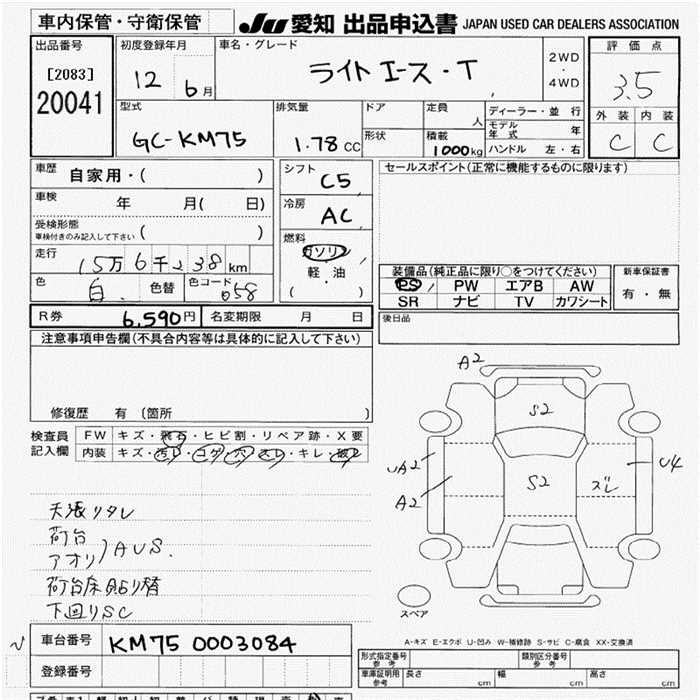 車内保管・守衛保管
JU 愛知 出品申込書 JAPAN USED CAR DEALERS ASSOCIATION
出品番号
[2083]
20041
初度登録年月
12 6月
車名・グレード
ライトエース・T
2WD
・
4WD
評価点
3.5
外装 内装
C C
型式
GC-KM75
排気量
1.78 CC
ドア
形状
定員
人
積載
1000kg
ディーラー・並行
モデル年式 年
ハンドル 左・右
車歴
自家用・( )
車検
年 月( 日)
受検形態
車検付きのみ記入して下さい ( )
走行
15万6千238km
色
白
色替
色コード
058
シフト
C5
冷房
AC
燃料
ガソリン
軽・油
( )
セールスポイント(正常に機能するものに限ります)
装備品(純正品に限り○をつけてください)
PS PW エアB AW
SR ナビ TV カワシート
新車保証書
有・無
R券 6,590円 名変期限 月 日
後日品
注意事項申告欄(不具合内容等は具体的に記入して下さい)
修復歴 有(箇所 )
検査員
記入欄
FW キズ・飛石・ヒビ割・リペア跡・X要
内装 キズ・汚レ・コゲ・穴・スレ・キレ・破レ
天張リタレ
荷台
アオリ)AUS.
荷台床貼り替
下回りSC
A2
S2
UA2
A2
S2
ズレ
U4
スペア
A-キズ E-エクボ U-凹み W-補修跡 S-サビ C-腐食 XX-交換済
車台番号 KM75 0003084
登録番号
形式指定番号
参考
類別区分番号
参考
車庫証明用
参考
長さ cm 幅 cm 高さ cm